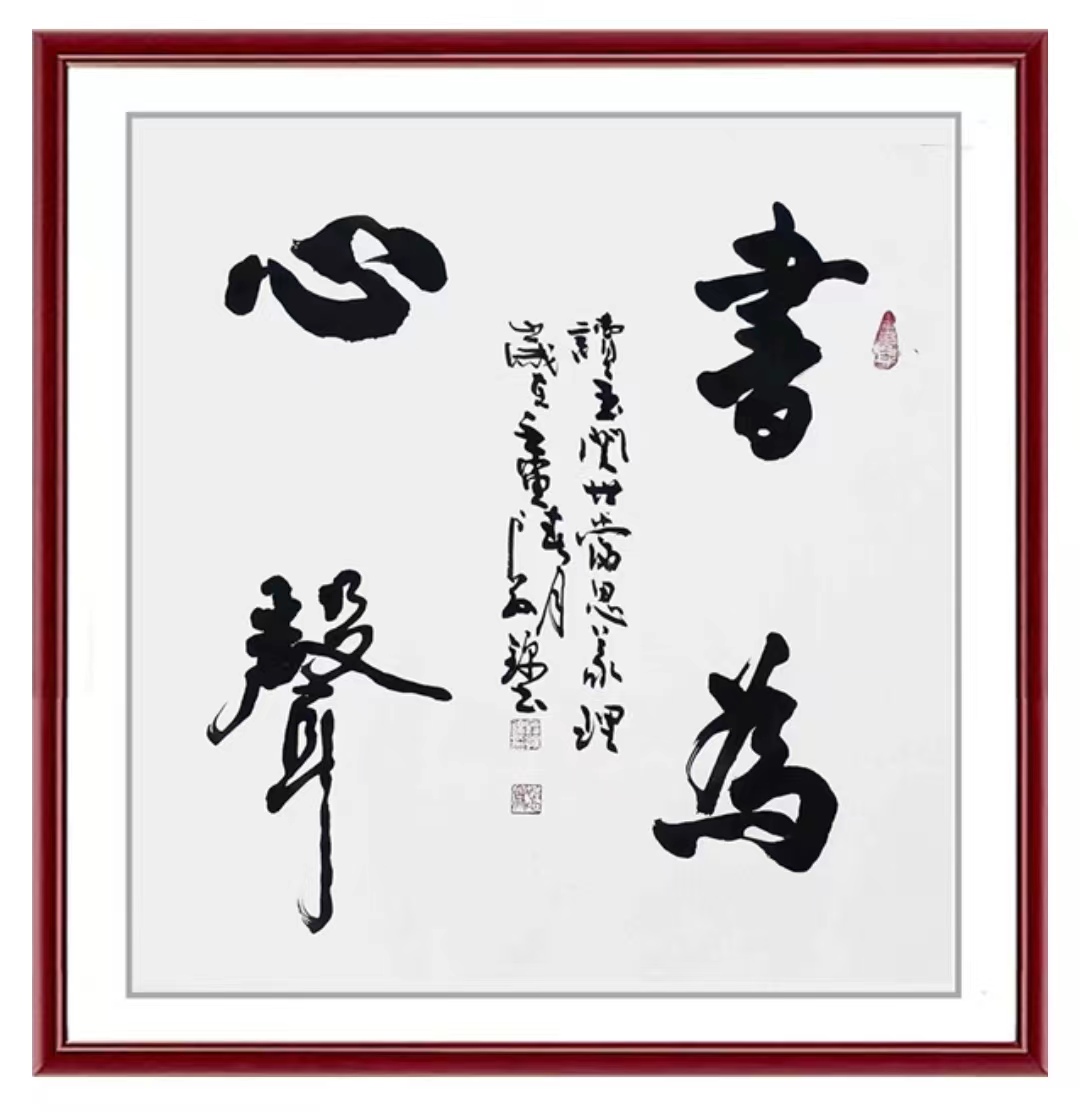 書為
心聲
讀書閱世當思義理
歲在壬寅清明月